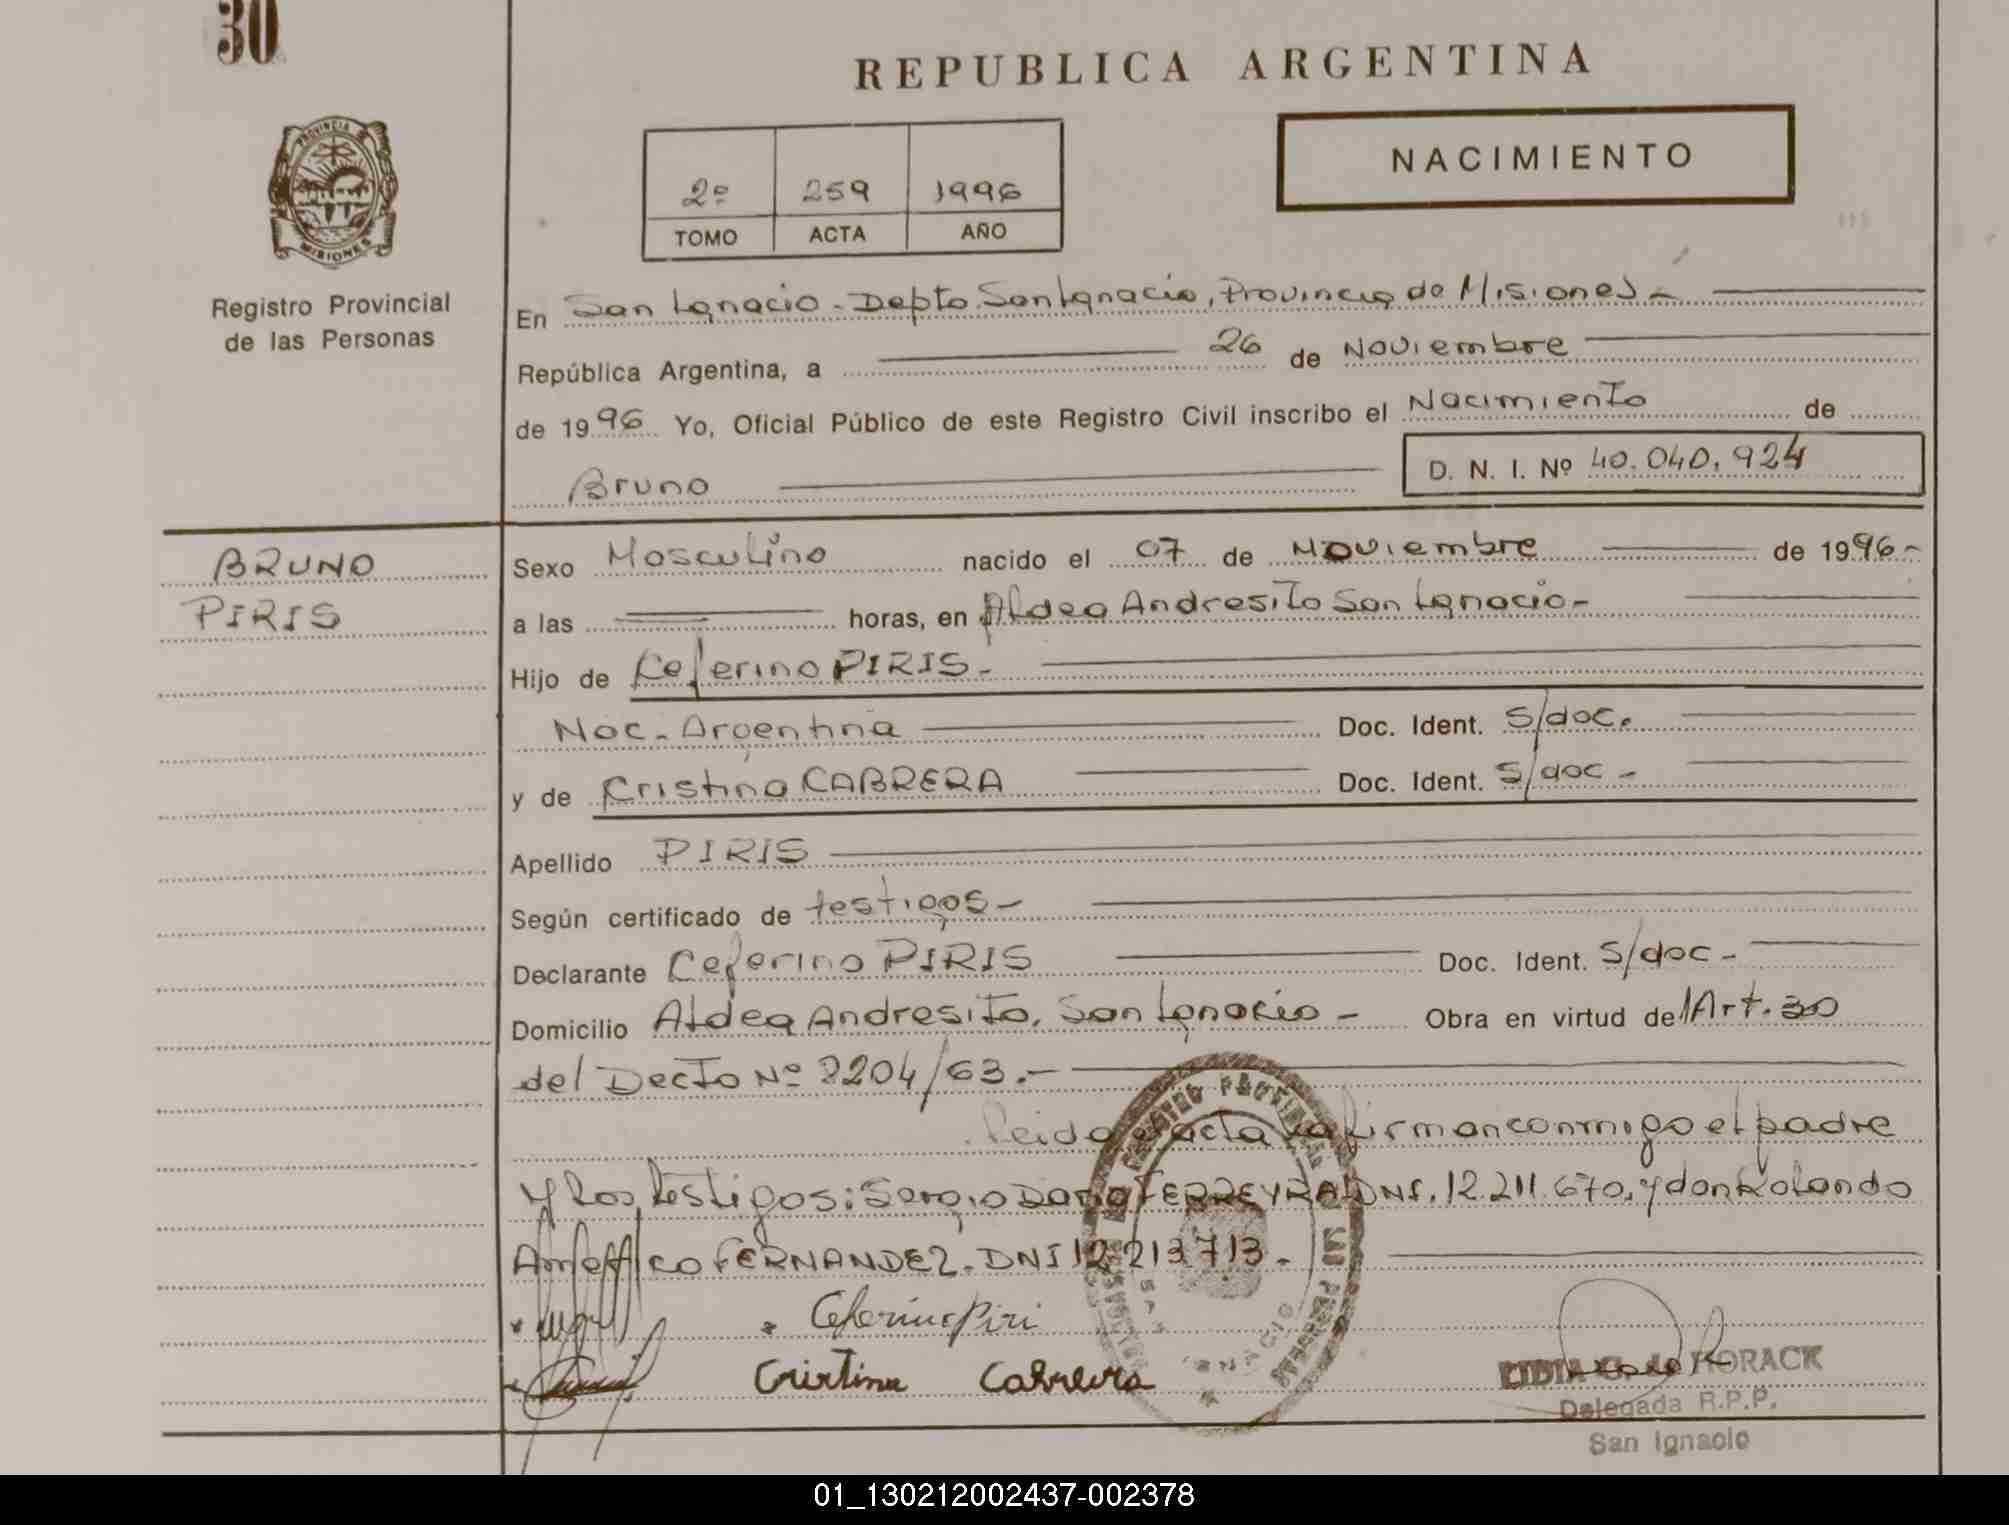 30
REPUBLICA ARGENTINA
NACIMIENTO
2º 259 1996
TOMO ACTA AÑO
PROVINCIA DE MISIONES
Registro Provincial
de las Personas
En San Ignacio - Depto San Ignacio, Provincia de Misiones -
República Argentina, a 26 de Noviembre
de 1996 Yo, Oficial Público de este Registro Civil inscribo el Nacimiento de
Bruno D. N. I. Nº 40.040.924
BRUNO
PIRIS
Sexo Masculino nacido el 07 de Noviembre de 1996-
a las horas, en Aldea Andresito San Ignacio-
Hijo de Ceferino PIRIS-
Nac. Argentina Doc. Ident. S/doc.
y de Cristina CABRERA Doc. Ident. S/doc -
Apellido PIRIS
Según certificado de testigos-
Declarante Ceferino PIRIS Doc. Ident. S/doc-
Domicilio Aldea Andresito, San Ignacio - Obra en virtud del Art. 30
del Decto Nº 8204/63.-
Leida el acta la firman conmigo el padre
y los testigos: Sergio Dario FERREYRA DNI. 12.211.670, y don Rolando
Americo FERNANDEZ. DNI 12.213.713.-
Ceferino Piri
Cristina Cabrera
REGISTRO PROVINCIAL DE LAS PERSONAS
SAN IGNACIO
LIDIA G. de HORACK
Delegada R.P.P.
San Ignacio
01_130212002437-002378